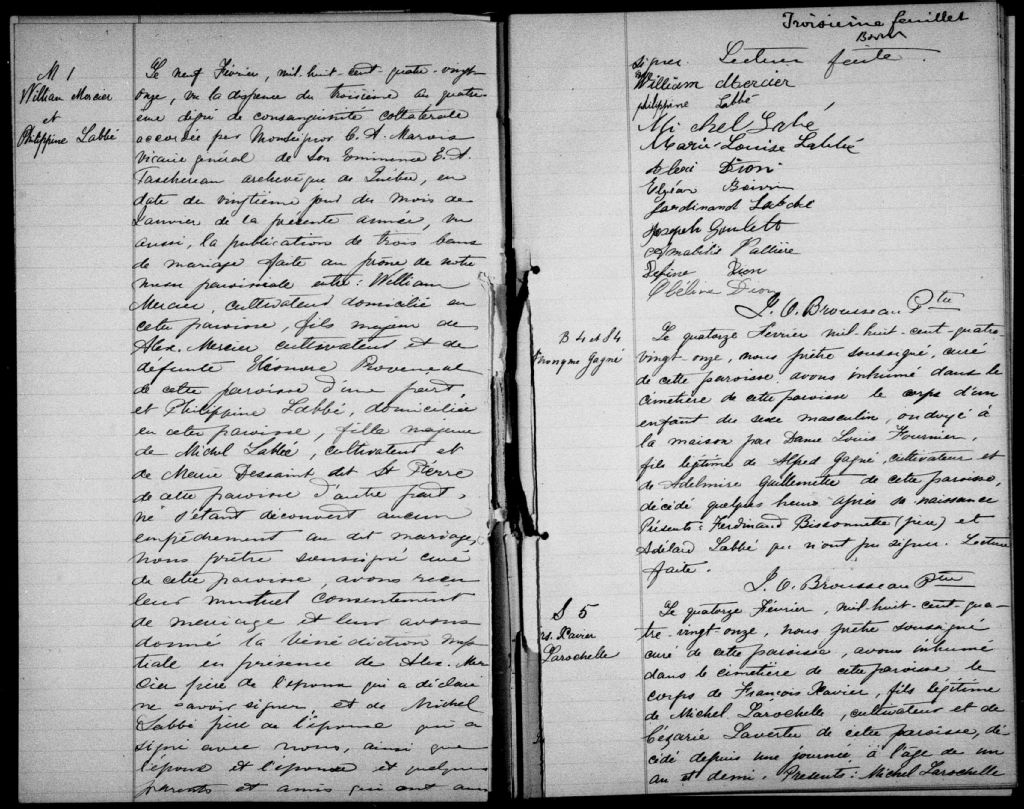 M 1
William Mercier
et
Philippine Labbé
Le neuf Février, mil-huit-cent-quatre-vingt-
onze, vu la dispense du troisième au quatri-
ème degré de consanguinité collatérale
accordée par Monseigneur C. A. Marois
Vicaire général de Son Eminence E. A.
Taschereau archevêque de Québec, en
date du vingtième jour du mois de
Janvier de la présente année, vu
aussi, la publication de trois bans
de mariage faite au prône de notre
messe paroissiale entre: William
Mercier, cultivateur domicilié en
cette paroisse, fils majeur de
Alex. Mercier cultivateur et de
défunte Eléonore Provencal
de cette paroisse d'une part,
et Philippine Labbé, domiciliée
en cette paroisse, fille majeure
de Michel Labbé, cultivateur et
de Marie Dessaint dit St Pierre
de cette paroisse d'autre part,
ne s'étant découvert aucun
empêchement au dit mariage,
nous prêtre soussigné curé
de cette paroisse, avons reçu
leur mutuel consentement
de mariage et leur avons
donné la bénédiction nup-
tiale en présence de Alex. Mer-
cier père de l'époux qui a déclaré
ne savoir signer, et de Michel
Labbé père de l'épouse qui a
signé avec nous, ainsi que
l'époux et l'épouse et quelques
parents et amis qui ont aus
Troisième feuillet
signer. Lecture faite.
William Mercier
philippine Labbé
Michel Labé
Marie-Louise Labbé
Alexi Dion
Elzéar Boivin
Ferdinand Labbé
Joseph Goulett
Amabilis Vallière
Défine Dion
Obéline Dion
J. O. Brousseau Ptre
B 4 et S 4
Anonyme Gagné
Le quatorze Février mil-huit-cent-quatre-
vingt-onze, nous prêtre soussigné, curé
de cette paroisse avons inhumé dans le
cimetière de cette paroisse le corps d'un
enfant du sexe masculin, ondoyé à
la maison par Dame Louis Fournier,
fils légitime de Alfred Gagné, cultivateur et
de Adelmire Guillemette de cette paroisse,
décédé quelques heures après sa naissance
Présents: Ferdinand Bissonnette (père) et
Adélard Labbé qui n'ont pu signer. Lecture
faite.
J. O. Brousseau Ptre
S 5
rs. Xavier
Larochelle
Le quatorze Février, mil-huit-cent-qua-
tre-vingt-onze, nous prêtre soussigné
curé de cette paroisse, avons inhumé
dans le cimetière de cette paroisse le
corps de François Xavier, fils légitime
de Michel Larochelle, cultivateur et de
Césarie Lavertu de cette paroisse, dé-
cédé depuis une journée à l'âge de un
an et demi. Présents: Michel Larochelle